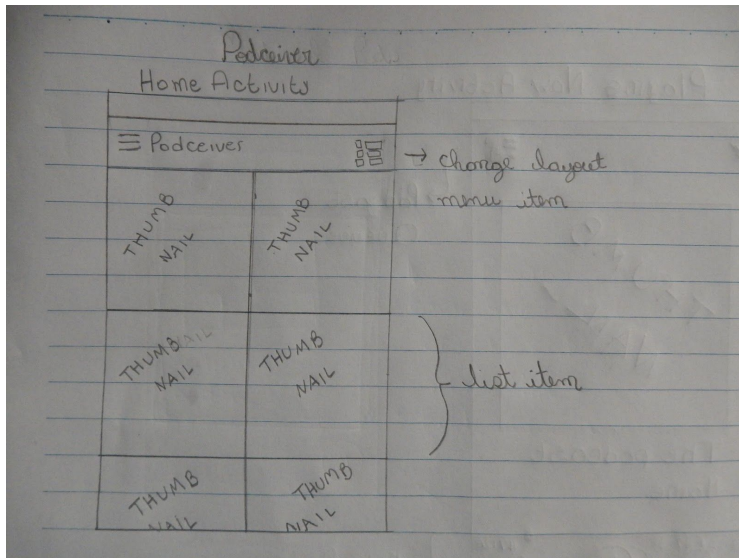 Podceiver
Home Activity
Podceives
→ change layout
menu item
THUMB
NAIL
THUMB
NAIL
THUMB
NAIL
THUMB
NAIL
list item
THUMB
NAIL
THUMB
NAIL